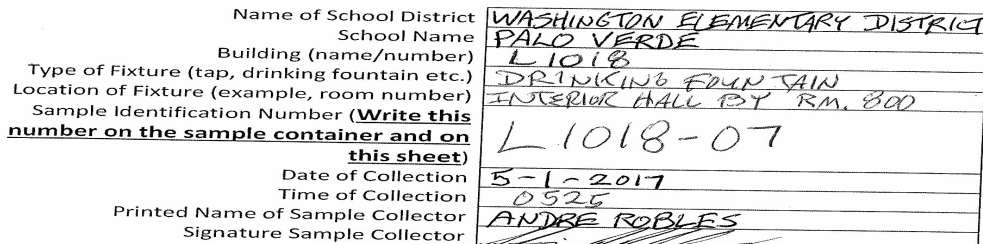 Name of School District WASHINGTON ELEMENTARY DISTRICT
School Name PALO VERDE
Building (name/number) L1018
Type of Fixture (tap, drinking fountain etc.) DRINKING FOUNTAIN
Location of Fixture (example, room number) INTERIOR HALL BY RM. 800
Sample Identification Number (Write this
number on the sample container and on
this sheet) L1018-07
Date of Collection 5-1-2017
Time of Collection 0525
Printed Name of Sample Collector ANDRE ROBLES
Signature Sample Collector